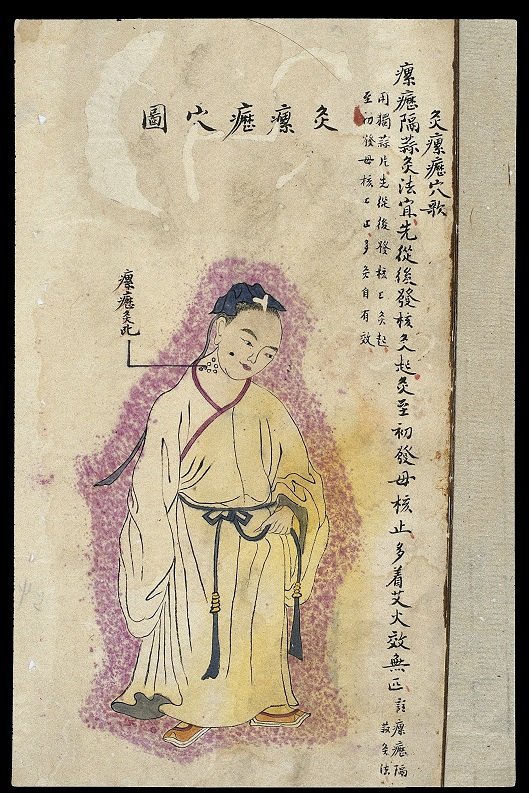 灸瘰癧穴歌
瘰癧隔蒜灸法宜先從後發核灸起灸至初發母核止多着艾火效無匹
註瘰癧隔
蒜灸法
用獨蒜片先從後發核上灸起
至初發母核上止多灸自有效
灸瘰癧穴圖
瘰癧灸此